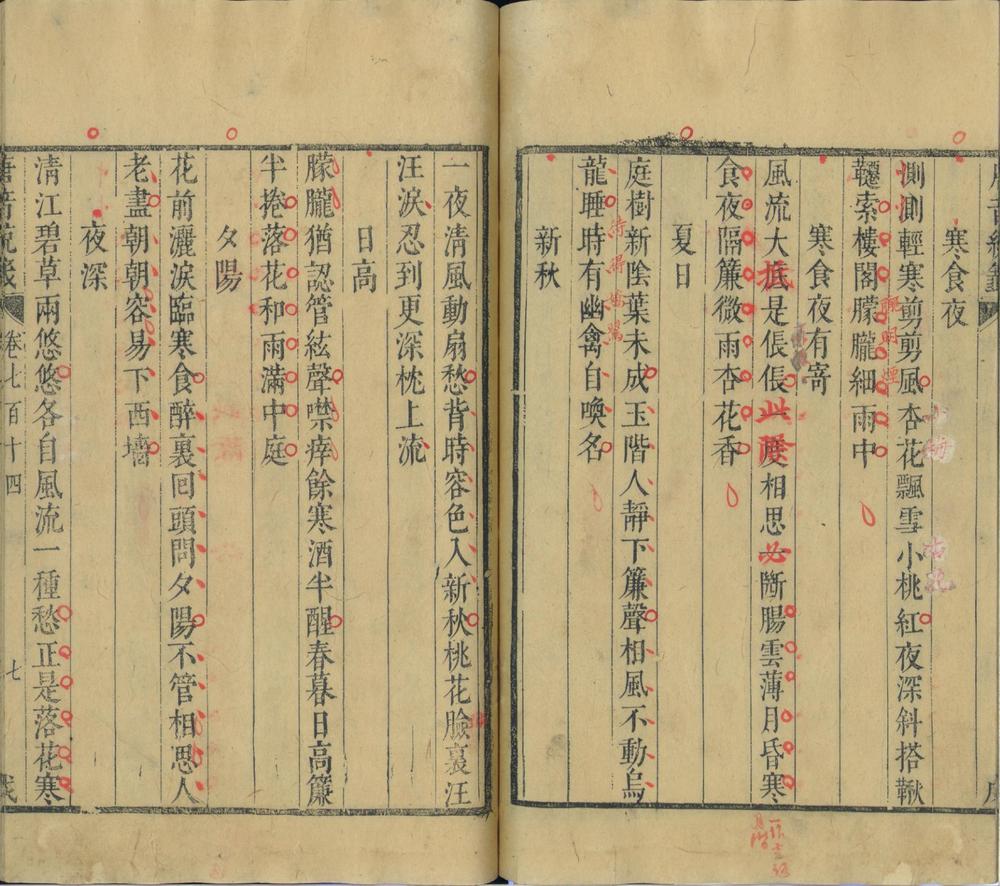 寒食夜
測測輕寒剪剪風杏花飄雪小桃紅夜深斜搭鞦
韆索樓閣朦朧細雨中
寒食夜有寄
風流大抵是倀倀此際相思必斷腸雲薄月昏寒
食夜隔簾微雨杏花香
夏日
庭樹新陰葉未成玉階人靜下簾聲相風不動烏
龍睡時有幽禽自喚名
新秋
一夜淸風動扇愁背時容色入新秋桃花臉裏汪
汪淚忍到更深枕上流
日高
朦朧猶認管絃聲噤痒餘寒酒半醒春暮日高簾
半捲落花和雨滿中庭
夕陽
花前灑淚臨寒食醉裏回頭問夕陽不管相思人
老盡朝朝容易下西墻
夜深
淸江碧草兩悠悠各自風流一種愁正是落花寒
唐音統籤 卷七百十四 七 戊